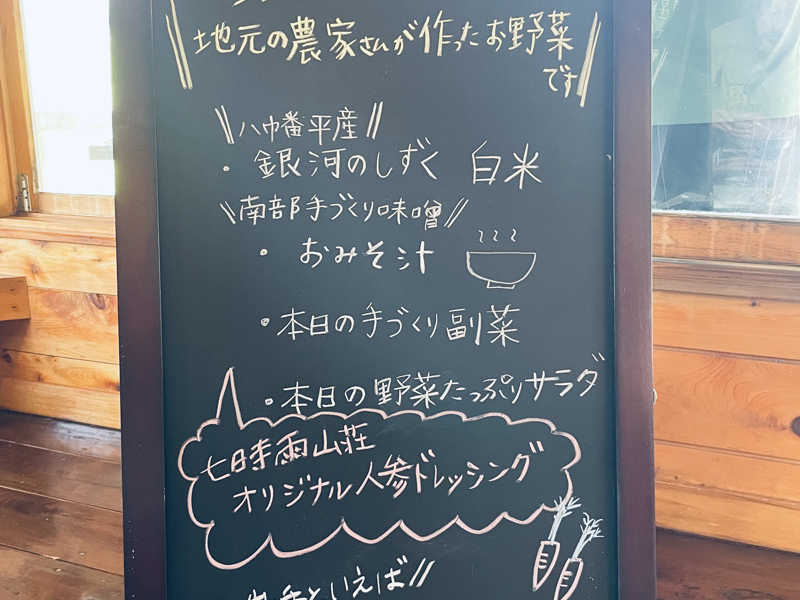 地元の農家さんが作ったお野菜
です
\\八幡平産//
・銀河のしずく 白米
\\南部手づくり味噌//
・おみそ汁
・本日の手づくり副菜
・本日の野菜たっぷりサラダ
七時雨山荘
オリジナル人参ドレッシング
といえば//